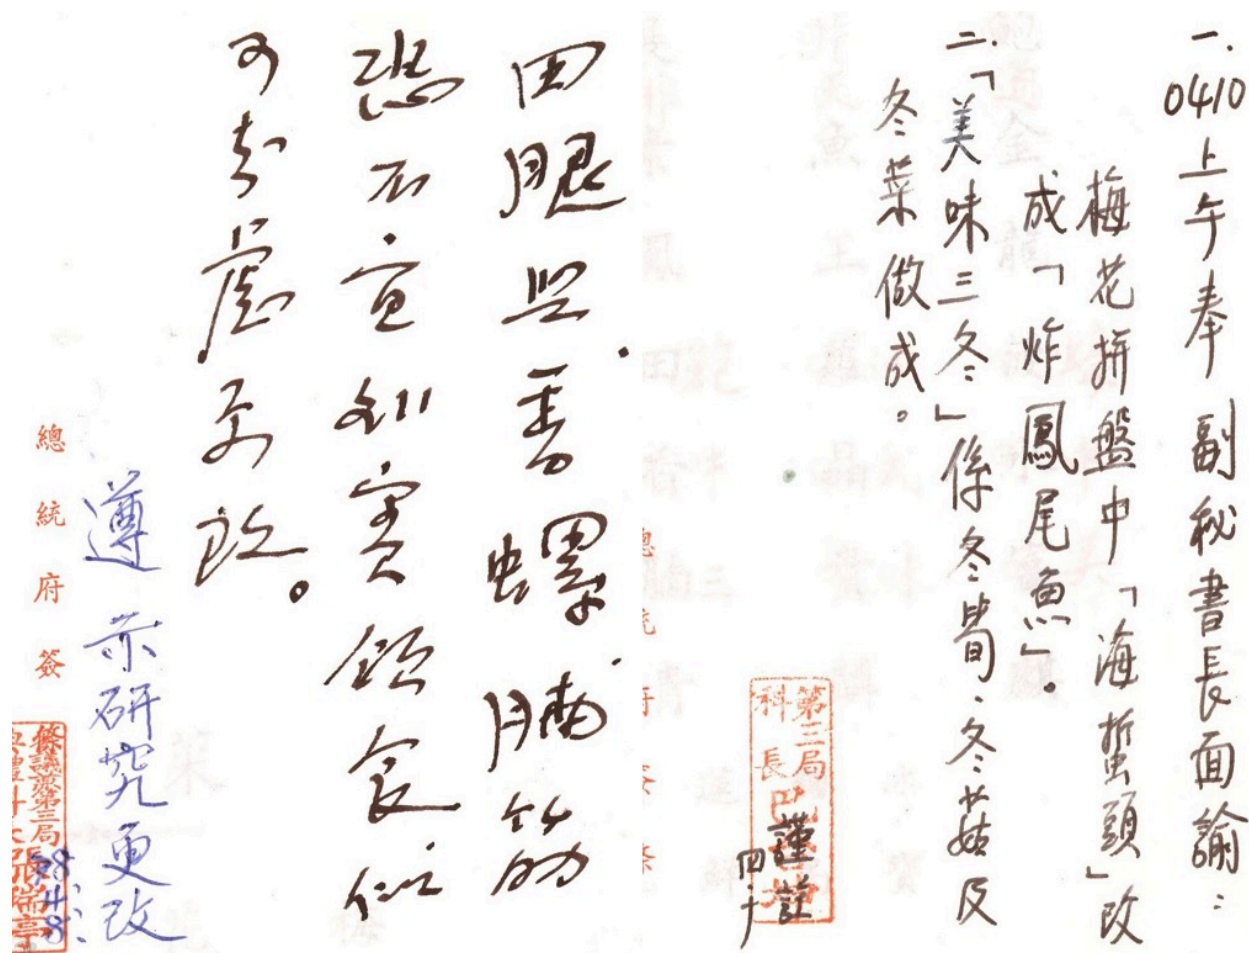 一.0410上午奉 副秘書長面諭：
梅花拼盤中「海蜇頭」改
成「炸鳳尾魚」。
二.「美味三冬」係冬筍、冬菇及
冬菜做成。
第三局
科長
謹註
四、十
田腿與.香螺.腩筋
恐不宜 賓飲食似
可考慮 改。
遵示研究更改
總統府簽
第三局
張瑞亭